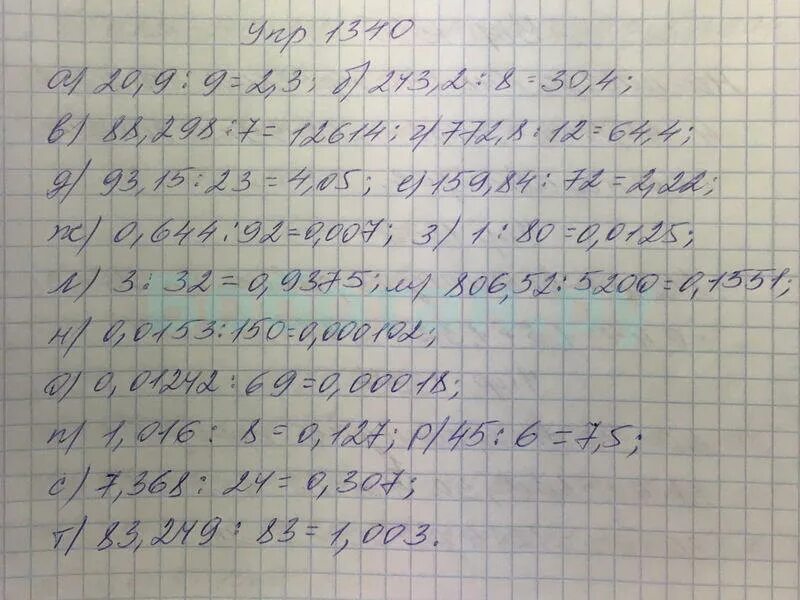 Упр 1340
а) 20,9 : 9 = 2,3; б) 243,2 : 8 = 30,4;
в) 88,298 : 7 = 12614; г) 772,8 : 12 = 64,4;
д) 93,15 : 23 = 4,05; е) 159,84 : 72 = 2,22;
ж) 0,644 : 92 = 0,007; з) 1 : 80 = 0,0125;
л) 3 : 32 = 0,9375; м) 806,52 : 5200 = 0,1551;
н) 0,0153 : 150 = 0,000102;
о) 0,01242 : 69 = 0,00018;
п) 1,016 : 8 = 0,127; р) 45 : 6 = 7,5;
с) 7,368 : 24 = 0,307;
т) 83,249 : 83 = 1,003.